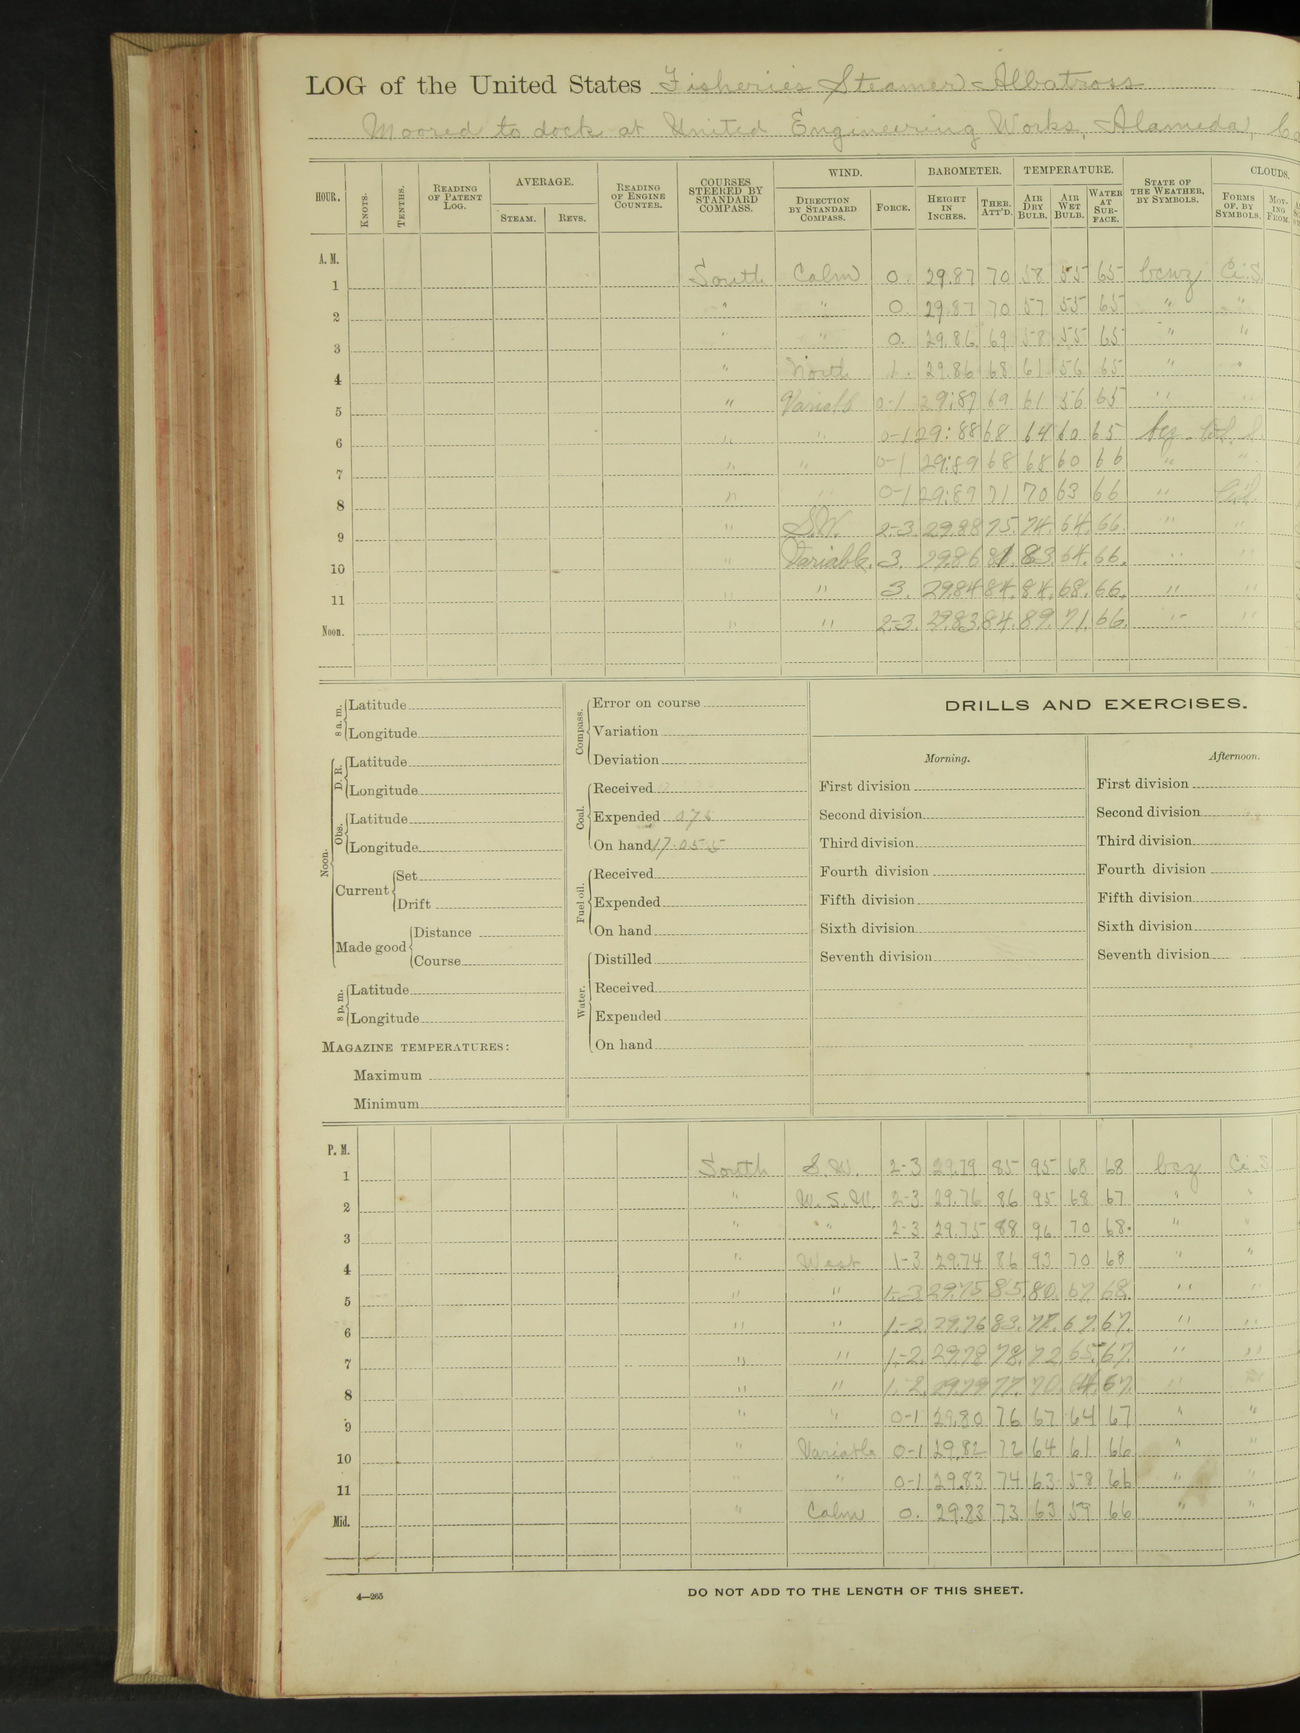 LOG of the United States Fisheries Steamer Albatross
Moored to dock at United Engineering Works, Alameda,
HOUR. KNOTS. TENTHS. READING OF PATENT LOG. AVERAGE. STEAM. REVS. READING OF ENGINE COUNTER. COURSES STEERED BY STANDARD COMPASS. WIND. DIRECTION BY STANDARD COMPASS. FORCE. BAROMETER. HEIGHT IN INCHES. THER. ATT'D. TEMPERATURE. AIR DRY BULB. AIR WET BULB. WATER AT SURFACE. STATE OF THE WEATHER, BY SYMBOLS. CLOUDS. FORMS OF, BY SYMBOLS. MOVING FROM.
A. M.
1 South Calm 0. 29.87 70 58 55 65 bcwz Ci.S.
2 " " 0. 29.87 70 57 55 65 " "
3 " " 0. 29.86 69 58 55 65 " "
4 " North 1. 29.86 68 61 56 65 " "
5 " Variable 0-1 29.87 69 61 56 65 " "
6 " " 0-1 29.88 68 64 60 65
7 " " 0-1 29.89 68 68 60 66 " "
8 " " 0-1 29.87 71 70 63 66 "
9 " S.W. 2-3. 29.88 75. 74. 64. 66. " "
10 " Variable. 3. 29.86 81. 83. 64. 66. " "
11 " " 3. 29.84 84. 84. 68. 66. " "
Noon. " " 2-3. 29.83. 84. 89. 71. 66. " "
8 a. m. Latitude
Longitude
Noon. D. R. Latitude
Longitude
Obs. Latitude
Longitude
Current Set
Drift
Made good Distance
Course
8 p. m. Latitude
Longitude
MAGAZINE TEMPERATURES:
Maximum
Minimum
Compass. Error on course
Variation
Deviation
Coal. Received
Expended .075
On hand 17.055
Fuel oil. Received
Expended
On hand
Water. Distilled
Received
Expended
On hand
DRILLS AND EXERCISES.
Morning. Afternoon.
First division First division
Second division Second division
Third division Third division
Fourth division Fourth division
Fifth division Fifth division
Sixth division Sixth division
Seventh division Seventh division
P. M.
1 South S.W. 2-3 29.79 85 95 68 68 bcz Ci.S
2 " W.S.W. 2-3 29.76 86 95 68 67 " "
3 " " 2-3 29.75 88 96 70 68 " "
4 " West 1-3 29.74 86 93 70 68 " "
5 " " 1-3 29.75 85. 80. 67. 68. " "
6 " " 1-2. 29.76 83. 77. 67. 67. " "
7 " " 1-2. 29.78 78. 72 65. 67. " "
8 " " 1-2. 29.79 77. 70. 64. 67. "
9 " " 0-1 29.80 76 67 64 67 " "
10 " Variable 0-1 29.82 72 64 61 66 " "
11 " " 0-1 29.83 74 63 58 66 " "
Mid. " Calm 0. 29.83 73 63 59 66 " "
4—265
DO NOT ADD TO THE LENGTH OF THIS SHEET.